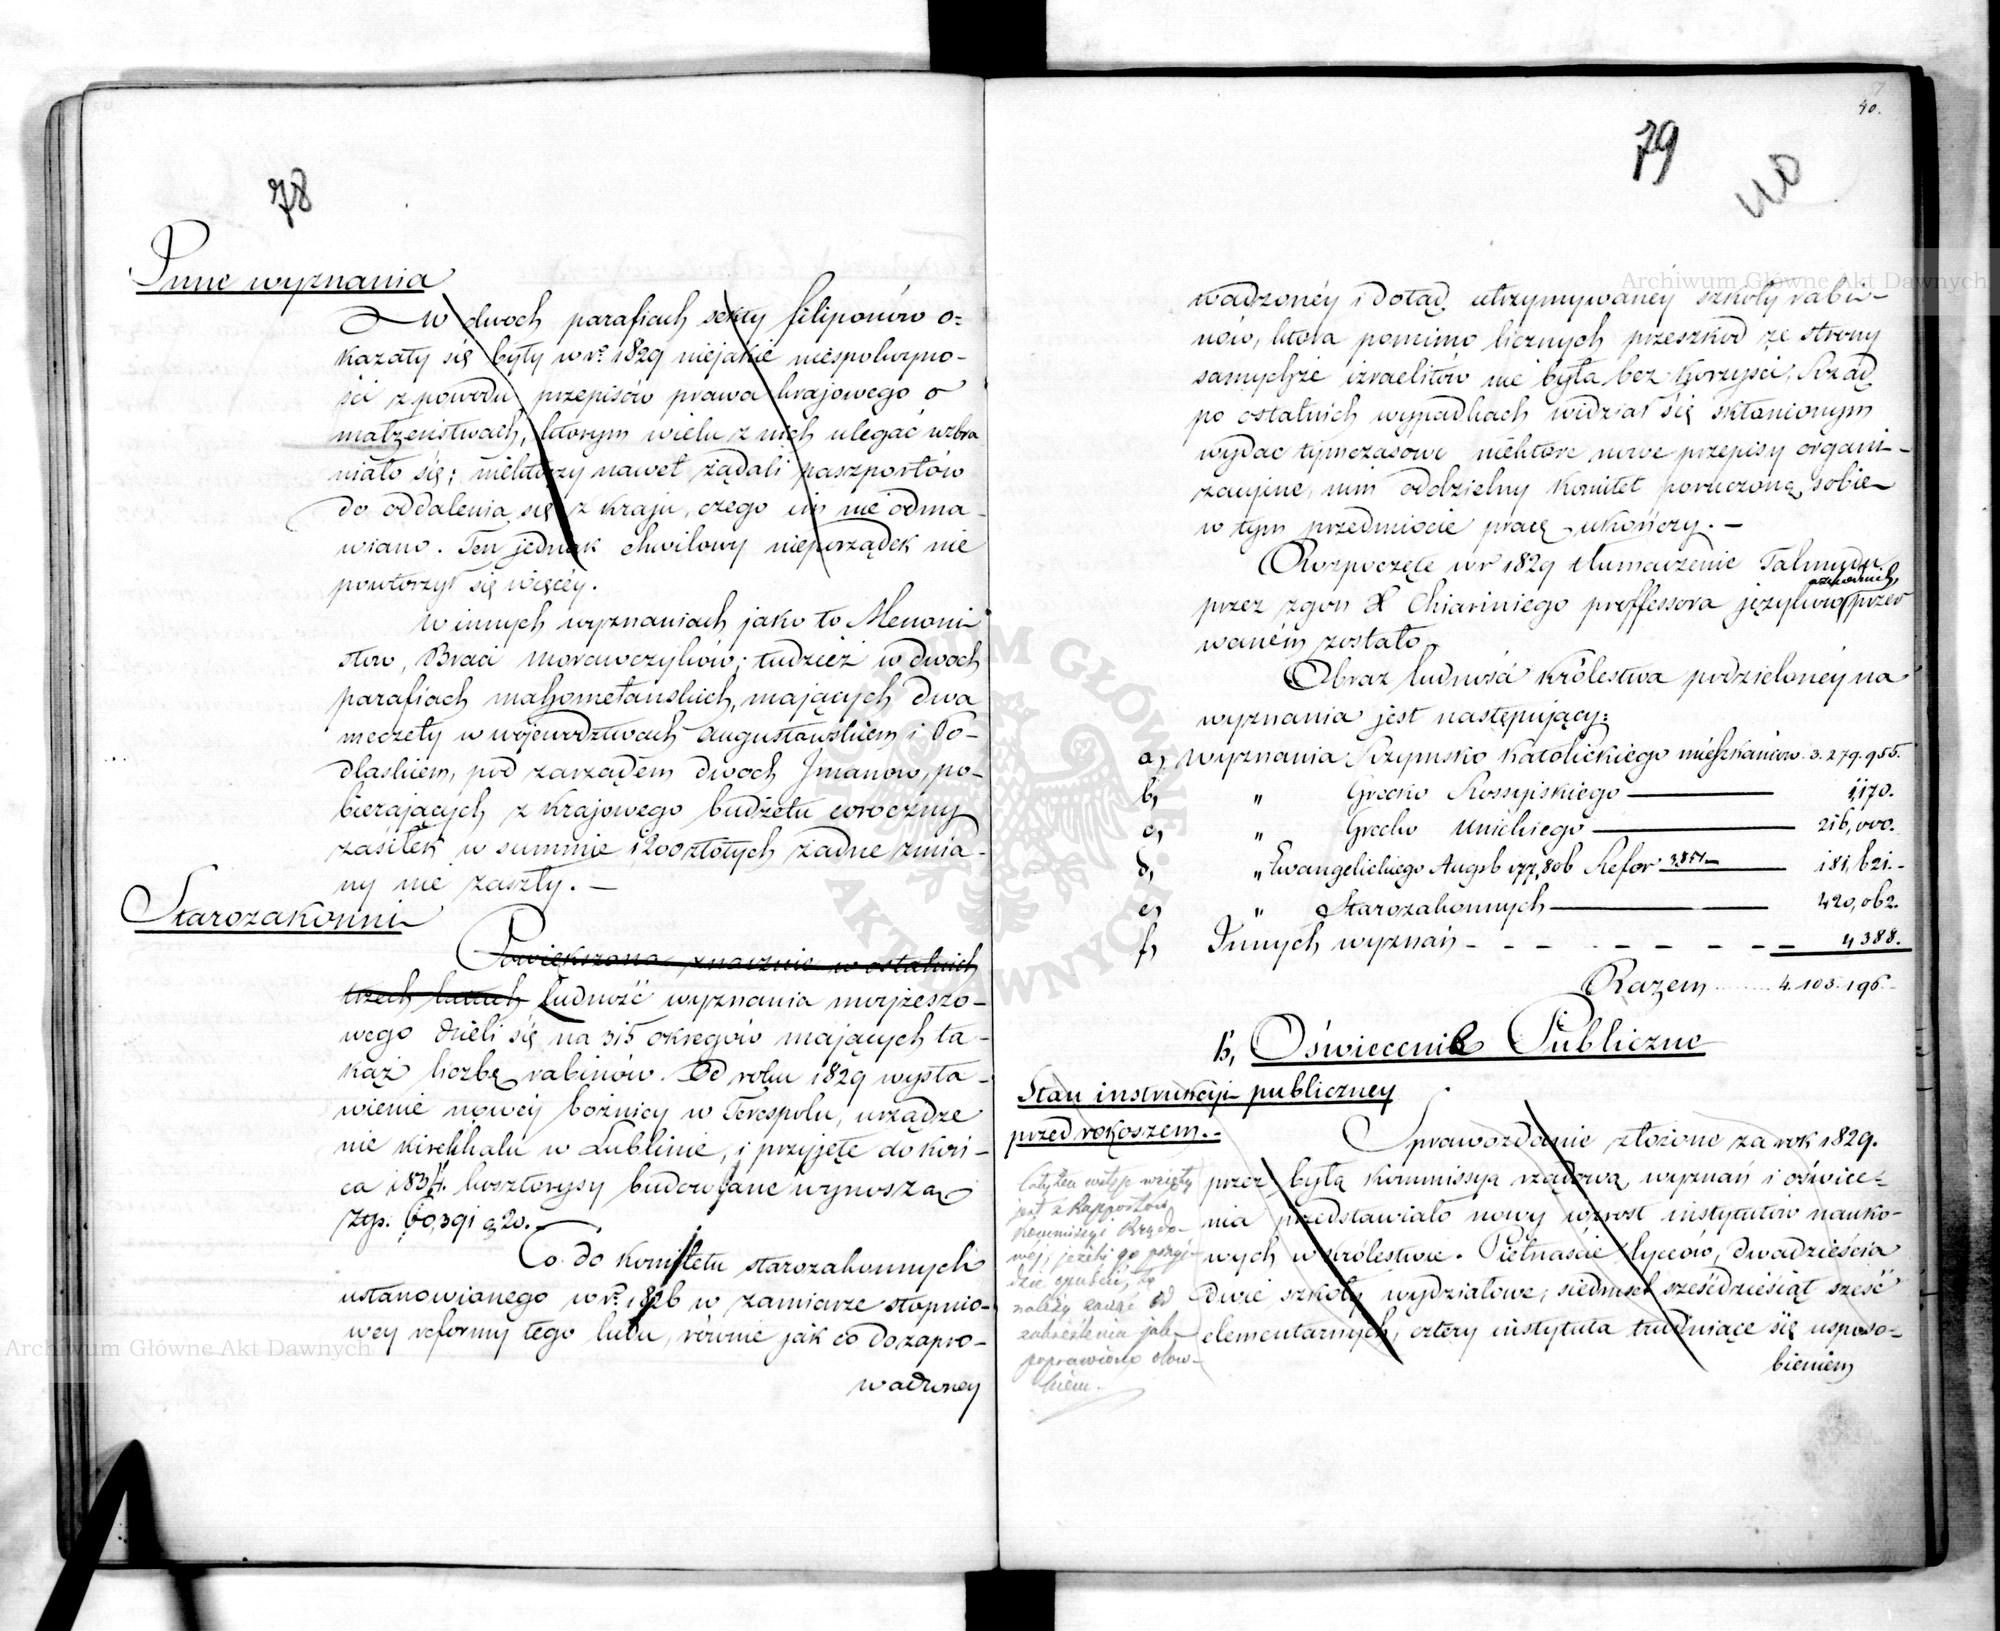 78
Inne wyznania
W dwoch parafiach sekty filiponów o=
kazały się były w r. 1829 niejakie niespokoyno-
ści z powodu przepisów prawa krajowego o
małżeństwach, ktorym wielu z nich ulegać wzbra
niało się; niektórzy nawet żądali paszportów
do oddalenia się z kraju, czego im nie odma-
wiano. Ten jednak chwilowy nieporządek nie
powtorzył się więcéy.
W innych wyznaniach jako to Menoni
stow, Braci Morawczyków; tudzież w dwoch
parafiach mahometańskich, mających dwa
meczety w wojewodztwach Augustowskiem i Po-
dlaskiem, pod zarządem dwoch Imanow, po-
bierających z krajowego budżetu coroczny
zasiłek w summie 1200 złotych żadne zmia-
ny nie zaszły. —
Starozakonni
Powiększona znacznie w ostatnich
trzech latach Ludność wyznania mojżeszo-
wego dzieli się na 315 okręgów mających ta-
kąż liczbę rabinów. Od roku 1829 wysta-
wienie nowéy bożnicy w Terespolu, urządze
nie kirchhalu w Lublinie, i przyjęte do koń-
ca 1834. kosztorysy budowlane wynoszą
Złp. 60,391 g 20. —
Co do Komitetu starozakonnych
ustanowionego w r. 1826 w zamiarze stopnio-
wey reformy tego ludu, rownie jak co do zapro-
wadzoney
40.
79
40
wadzonéy i dotąd utrzymywanéy szkoły rabi-
nów, ktora pomimo licznych przeszkod ze strony
samychże izraelitów nie była bez korzyści; Rząd
po ostatnich wypadkach widział się skłonionym
wydac tymczasowe niektore nowe przepisy organi-
zacyjne, nim oddzielny Komitet poruczoną sobie
w tym przedmiocie pracę ukończy. —
Rozpoczęte w r 1829 tłumaczenie Talmudu
przez zgon X Chiariniego proffessora języków wschodnich, przer
waném zostało.
Obraz ludności Królestwa podzielonéy na
wyznania jest następujący:
a, Wyznania Rzymsko Katolickiego mieszkańcow. 3.279.955.
b, " Grecko Rossyiskiego — 1,170.
c, " Grecko Unickiego — 216,000.
d, " Ewangelickiego Augsb 177,806 Refor 3,851 — 181,621.-
e, " Starozakonnych — 420,062.
f, Innych wyznań - - - - - - - - 4388.
Razem ........ 4.103.196.-
B, Oświecenie Publiczne
Stan instrukcyi publiczney
przed rokoszem. -
Sprawozdanie złożone za rok 1829.
przez byłą Kommissyą rządową wyznań i oświce-
nia przedstawiało nowy wzrost instytutów nauko-
wych w królestwie. Piętnaście lyceów, dwadzieścia
dwie szkoły wydziałowe, siedmset sześćdziesiąt sześć
elementarnych, cztery instytuta trudniące się usposo-
bieniem
Cały ten wstęp wzięty
jest z Rapportów
Kommissyi Rządo-
wej; jeżeli go przyj-
dzie opuścić, to
należy zacząć od
zakreślenia jak
poprawiono ołów-
kiem. -